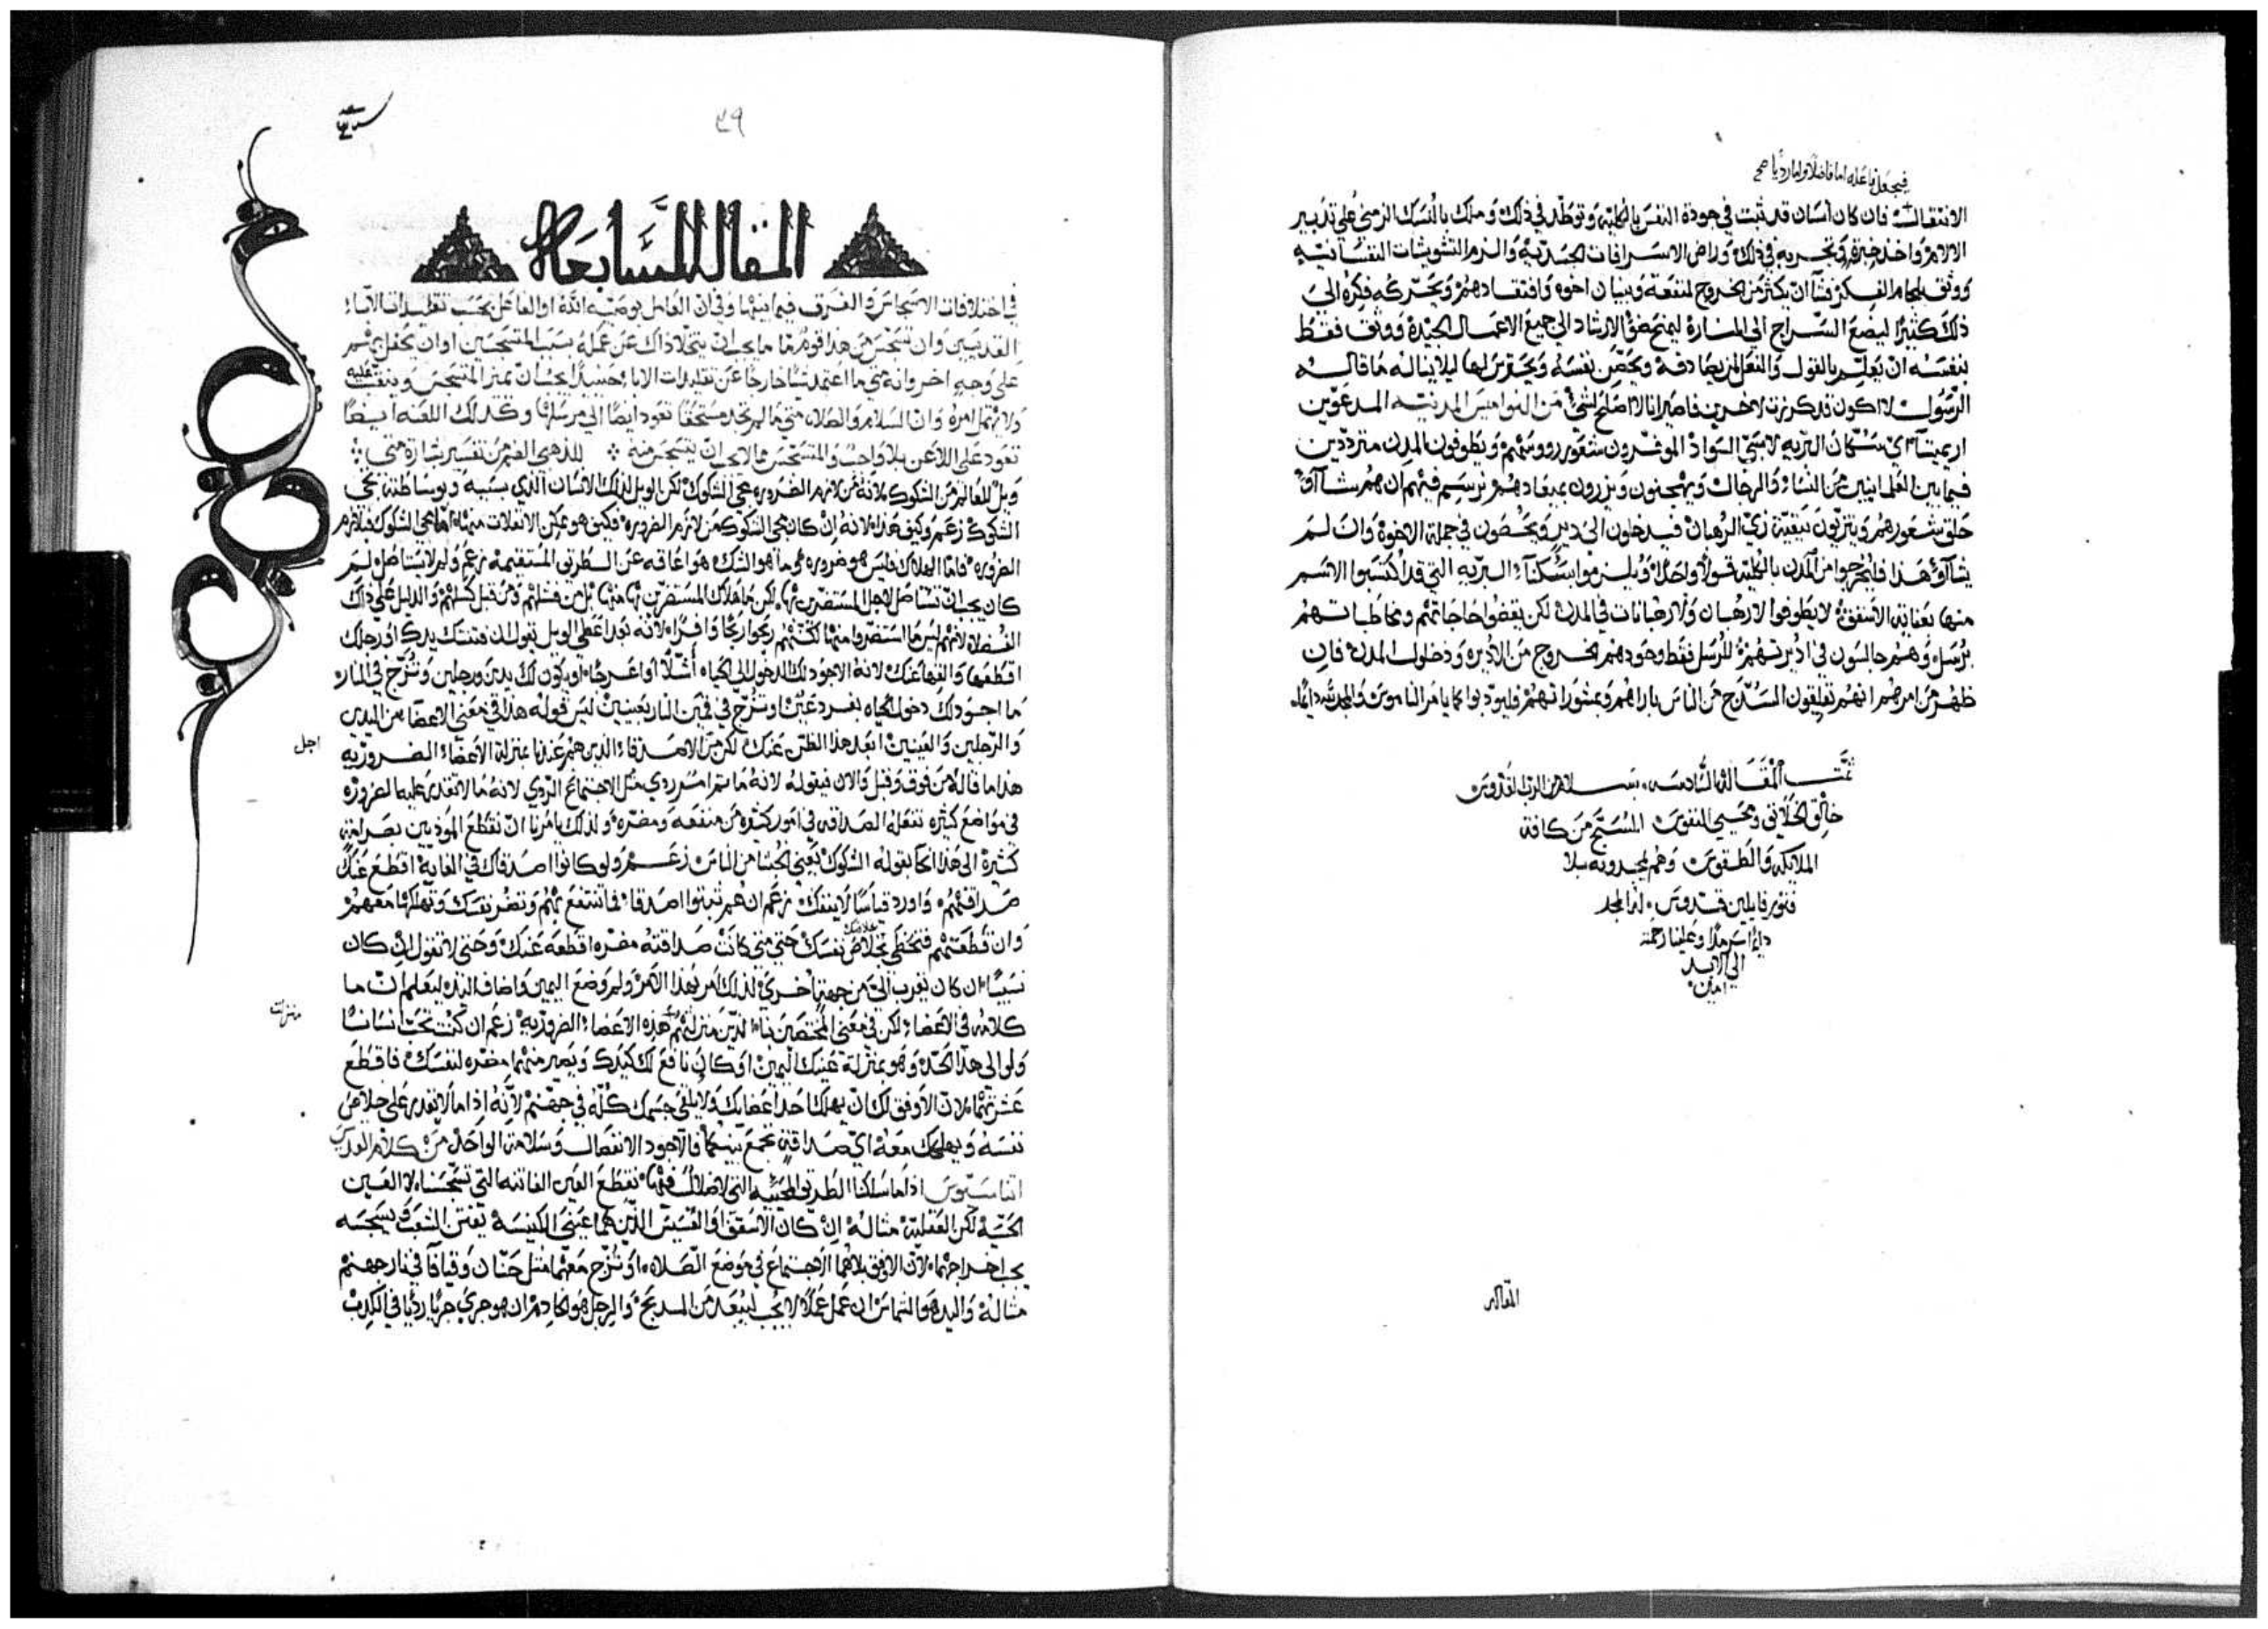 فيجعل فاعله اما فاضلًا واما رديًا صح
الانتقال فان كان انسان قد ثبت في جودة النفس بالكلية وتوطد في ذلك وملك بالنسك الزمني على تدبير
الالام واخذ خبرة وتجربه في ذلك وراض الاسرافات الجسدّيه والزم التشويشات النفسانيّه
ووثق بلجام الفكر فشآ ان يكثر من الخروج لمنفعة وبنيان اخوه وافتقادهم وتحرّكه فكره الى
ذلك كثيرًا ليضع السّراج الى المنارة ليمنح ضوّ الارشاد الى جميع الاعمال الجيّدة ووثق فقط
بنفسه ان يعلّم بالقول والفعل المزيّة صادقه ويحصّن نفسه ويحترس لها ليلا يناله ما قاله
الرسول لا اكون قد كرزت لاخرين فاصير انا لا اصلح لشي من النواميس المدنيه المدعوين
اريميتا اي سكان البريّه لابسي السواد الموفّرون شعور رووسهم ويطوفون المدن مترددين
فيما بين العلمانيين من النساء والرجال ويهجنون ويزرون بميعادهم نرسم فيهم ان هم شاآوا
حلق شعورهم ويتزيّون ببقيّة زيّ الرهبان فيدخلون الى دير ويحصون في جملة الاخوة وان لم
يشآوا هذا فليخرجوا من المدن بالكلية قولًا واحدًا ويلزموا سكناء البريّه التي قد اكتسبوا الاسم
منها بعناية الاسقف لا يطوفوا لا رهبان ولا رهبانات في المدن لكن يقضوا حاجاتهم ومخاطباتهم
برسل وهم جالسون في اديرتهم للرسل فقط وحودهم الخروج من الاديره ودخول المدن فان
ظهر من امرهم انهم يقلقون السدّج من الناس باراهم وبمشوراتهم فليودبوا كما يامر الناموس والمجد لله دايمًا
تمّت المقالة السّادسه بسلام من الرب القدوس
خالق الخلايق ومحيي النفوس المسبّح من كافة
الملايكه والطقوس وهم يمجدونه بلا
فتور قايلين قدوس له المجد
دايمًا سرمدًا وعلينا رحمته
الى الابد
امين
المقاله
٤٩
المقاله السّابعة
في اختلافات الاسجاس والفرق فيما بينها وفي ان العامل بوصيّه الله او الفاعل بحسب تقليدات الآباء
القديسين وان تسجس من هذا قومٌ ما يجب ان يتخلا ذاك عن عمله بسبب المتسجسين او ان يحفل بهم
على وجهٍ اخر وانه متى ما اعتمد شيًا خارجًا عن تقليدات الاباء حينيذٍ يجب ان يميز المتسجس ويتفقّد
ولا يهمل امره وان السلام والصلاه متى ما لم تجد مستحقًا تعود ايضًا الى مرسلها وكذلك اللعنه ايضًا
تعود على اللاعن بلا واجب والمتسجّس مما لا يجب ان يتسجس منه للذهبي الفم من تفسير بشارة متى
ويل للعالم من الشكوك لانه من لازم الضروره مجي الشكوك لكن الويل لذلك الانسان الذي بسببه وبوساطته تجي
الشكوك زعم وكيف هذا لانه ان كان مجي الشكوك من لازم الضرورة فكيف هو ممكن الانفلات منها اما مجي الشكوك فبلازم
الضروره فامّا الهلاك فليس هو ضروره وما هو الشك هو اعاقه عن الطريق المستقيمه زعم ولم لا يستاصل لم
كان يجب ان تستاصل لاجل المستضرّين بها لكن ما هلاك المستضرّين بها منها بل من فشلهم ومن قبل كسلهم والدليل على ذاك
الفضلا لانهم ليس ما استضروا منها لكنهم ربحوا ربحًا وافرًا لانه بعد اعطى الويل بقول ان فتنتك يدك او رجلك
اقطعها والقها عنك لانه الاجود لك الدخول الى الحياه أشلّا او اعرجًا او يكون لك يدين ورجلين وتُزج في النار
ما اجود لك دخول الحياه بفرد عين او تزجّ في جهنم النار بعينين ليس قوله هذا في معنى الاعضا من اليدين
والرّجلين والعينين ابعد هذا الظن عنك لكن من الاصدقاء الذين هم عندنا بمنزلة الاعضاء الضروريه
اجل
هذا ما قاله من فوق وقبل والان فيقوله لانه ما تم امر ردي مثل الاجتماع الردي لانه ما لا تقدر عليه الضروره
في مواضع كثيره تفعله الصداقه في امور كثيره من منفعه ومضره ولذلك يامرنا ان نقطع الموذيين بصرامه
كثيرة الى هذا نحا بقوله الشكوك يعني الخبثا من الناس زعم ولو كانوا اصدقاك في الغاية اقطع عنك
صداقتهم واورد قياسًا لا ينفك زعم ان هم ثبتوا اصدقاء فما تنتفع بهم وتضر نفسك وتهلكها معهم
وان قطعتهم فتحظى بخلاص نفسك حتى متى كانت صداقته مضره اقطعه عنك وحتى لا تقول ان كان
نسيبًا ان كان يقرب اليّ من جهةٍ اخرى لذلك امر بهذا الامر ولم وضع اليمين واضاف اليه ليعلم ان ما
كلامه في الاعضاء لكن في معنى المختصين بنا الذين منزلتهم هذه الاعضاء الضروريه زعم ان كنت تحب انسانًا
منزلت
ولو الى هذا الحدّ وهو بمنزلة عينك اليمين او كان نافع لك كيدك ويصير منهما مضره لنفسك فاقطع
عشرتهما لان الاوفق لك ان يهلك احد اعضايك ولا يلقى جسمك كلّه في جهنم لانّه اذا ما لا تقدر على خلاص
نفسه ويهلك معه اي صداقةٍ تجمع بينكما فالاجود الانفصال وسلامة الواحد من كلام القديس
اتناسيوس اذا ما سلكنا الطريق المحيّيه التي لا ضلال فيها نقطع العين الفاتنه التي تسجّسنا لا العين
الحسّيّه لكن العقليه مثاله ان كان الاسقف او القسيس الذين هما عيني الكنيسة يفتن الشعب ويسجسه
يجب اخراجهما لان الاوفق بلاهما الاجتماع في موضع الصّلاه او تُزج معهما مثل حنّان وقيافا في نار جهنم
مثاله واليد هو الشماس ان عمل عملًا لا يجب ليبعد من المدبح والرجل هو الخادم ان هو جرى جريًا رديًا في الكدب